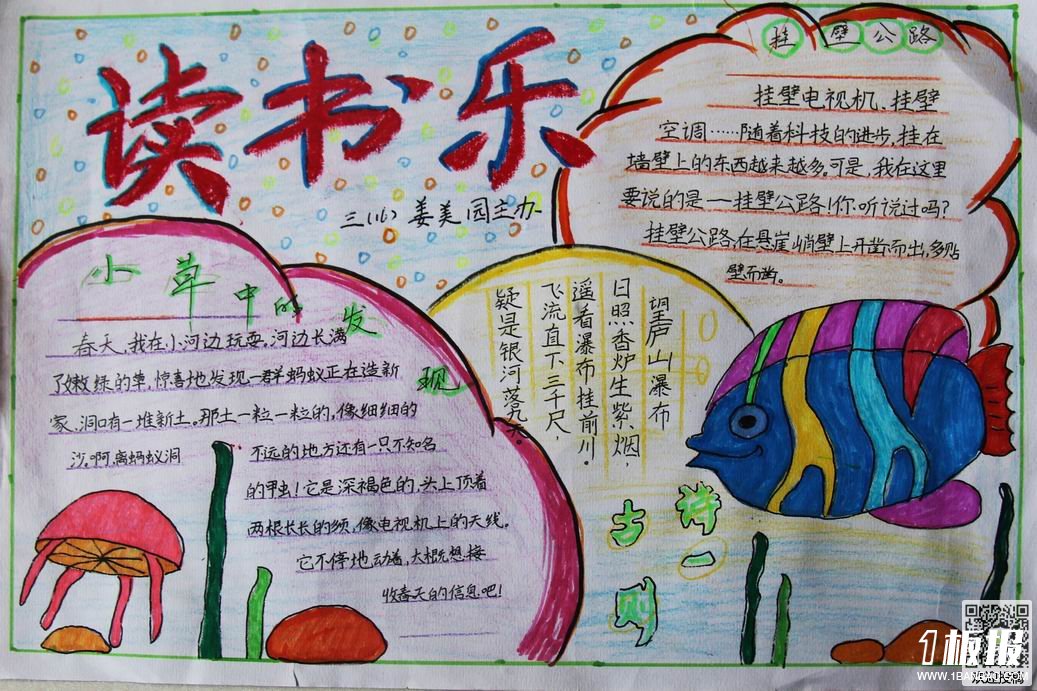 读书乐
三(16) 姜美园主办
挂壁公路
挂壁电视机、挂壁
空调……随着科技的进步,挂在
墙壁上的东西越来越多。可是,我在这里
要说的是一挂壁公路!你听说过吗?
挂壁公路,在悬崖峭壁上开凿而出,多贴
壁而凿。
小草中的发现
春天,我在小河边玩耍,河边长满
了嫩绿的草,惊喜地发现一群蚂蚁正在造新
家、洞口有一堆新土。那土一粒一粒的,像细细的
沙。啊,离蚂蚁洞
不远的地方还有一只不知名
的甲虫!它是深褐色的,头上顶着
两根长长的须,像电视机上的天线。
它不停地动着,大概想接
收春天的信息吧!
望庐山瀑布
日照香炉生紫烟,
遥看瀑布挂前川。
飞流直下三千尺,
疑是银河落九天。
古诗一则
1板报
WWW.1BANBAO.COM
欢迎投稿